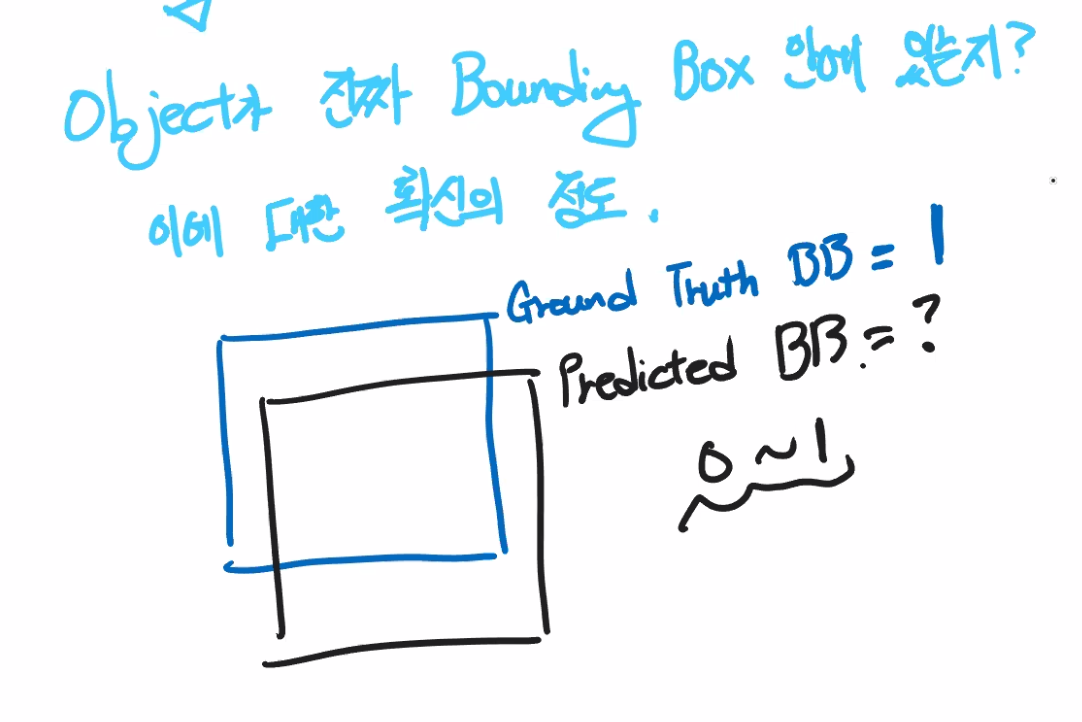 Object가 진짜 Bounding Box 안에 있는지?
이에 대한 확신의 정도.
Ground Truth BB = 1
Predicted BB = ?
0 ~ 1